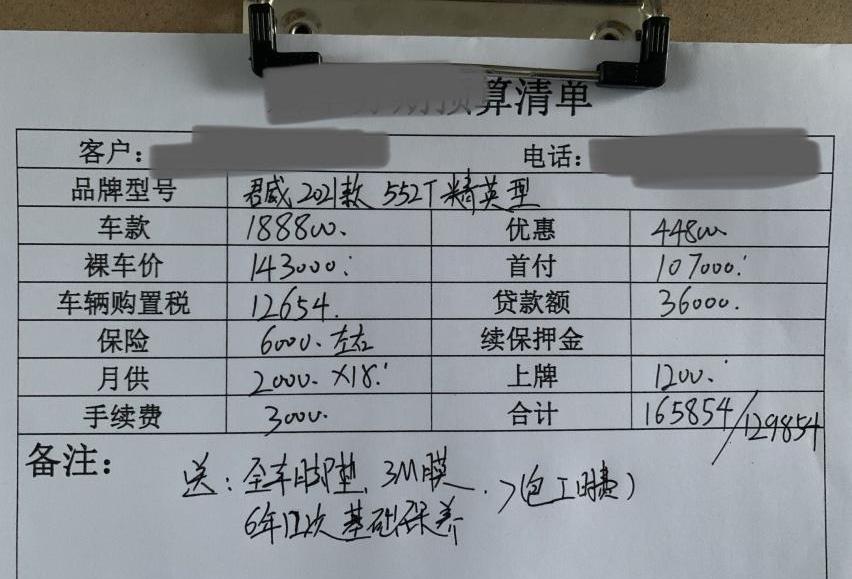 算清单
客户：
电话：
品牌型号 君威 2021款 552T 精英型
车款 188800. 优惠 44800.
裸车价 143000. 首付 107000.
车辆购置税 12654. 贷款额 36000.
保险 6000. 左右 续保押金
月供 2000. ×18. 上牌 1200.
手续费 3000. 合计 165854/129854
备注：
送：全车脚垫、3M膜、>(包工时费)
6年12次基础保养